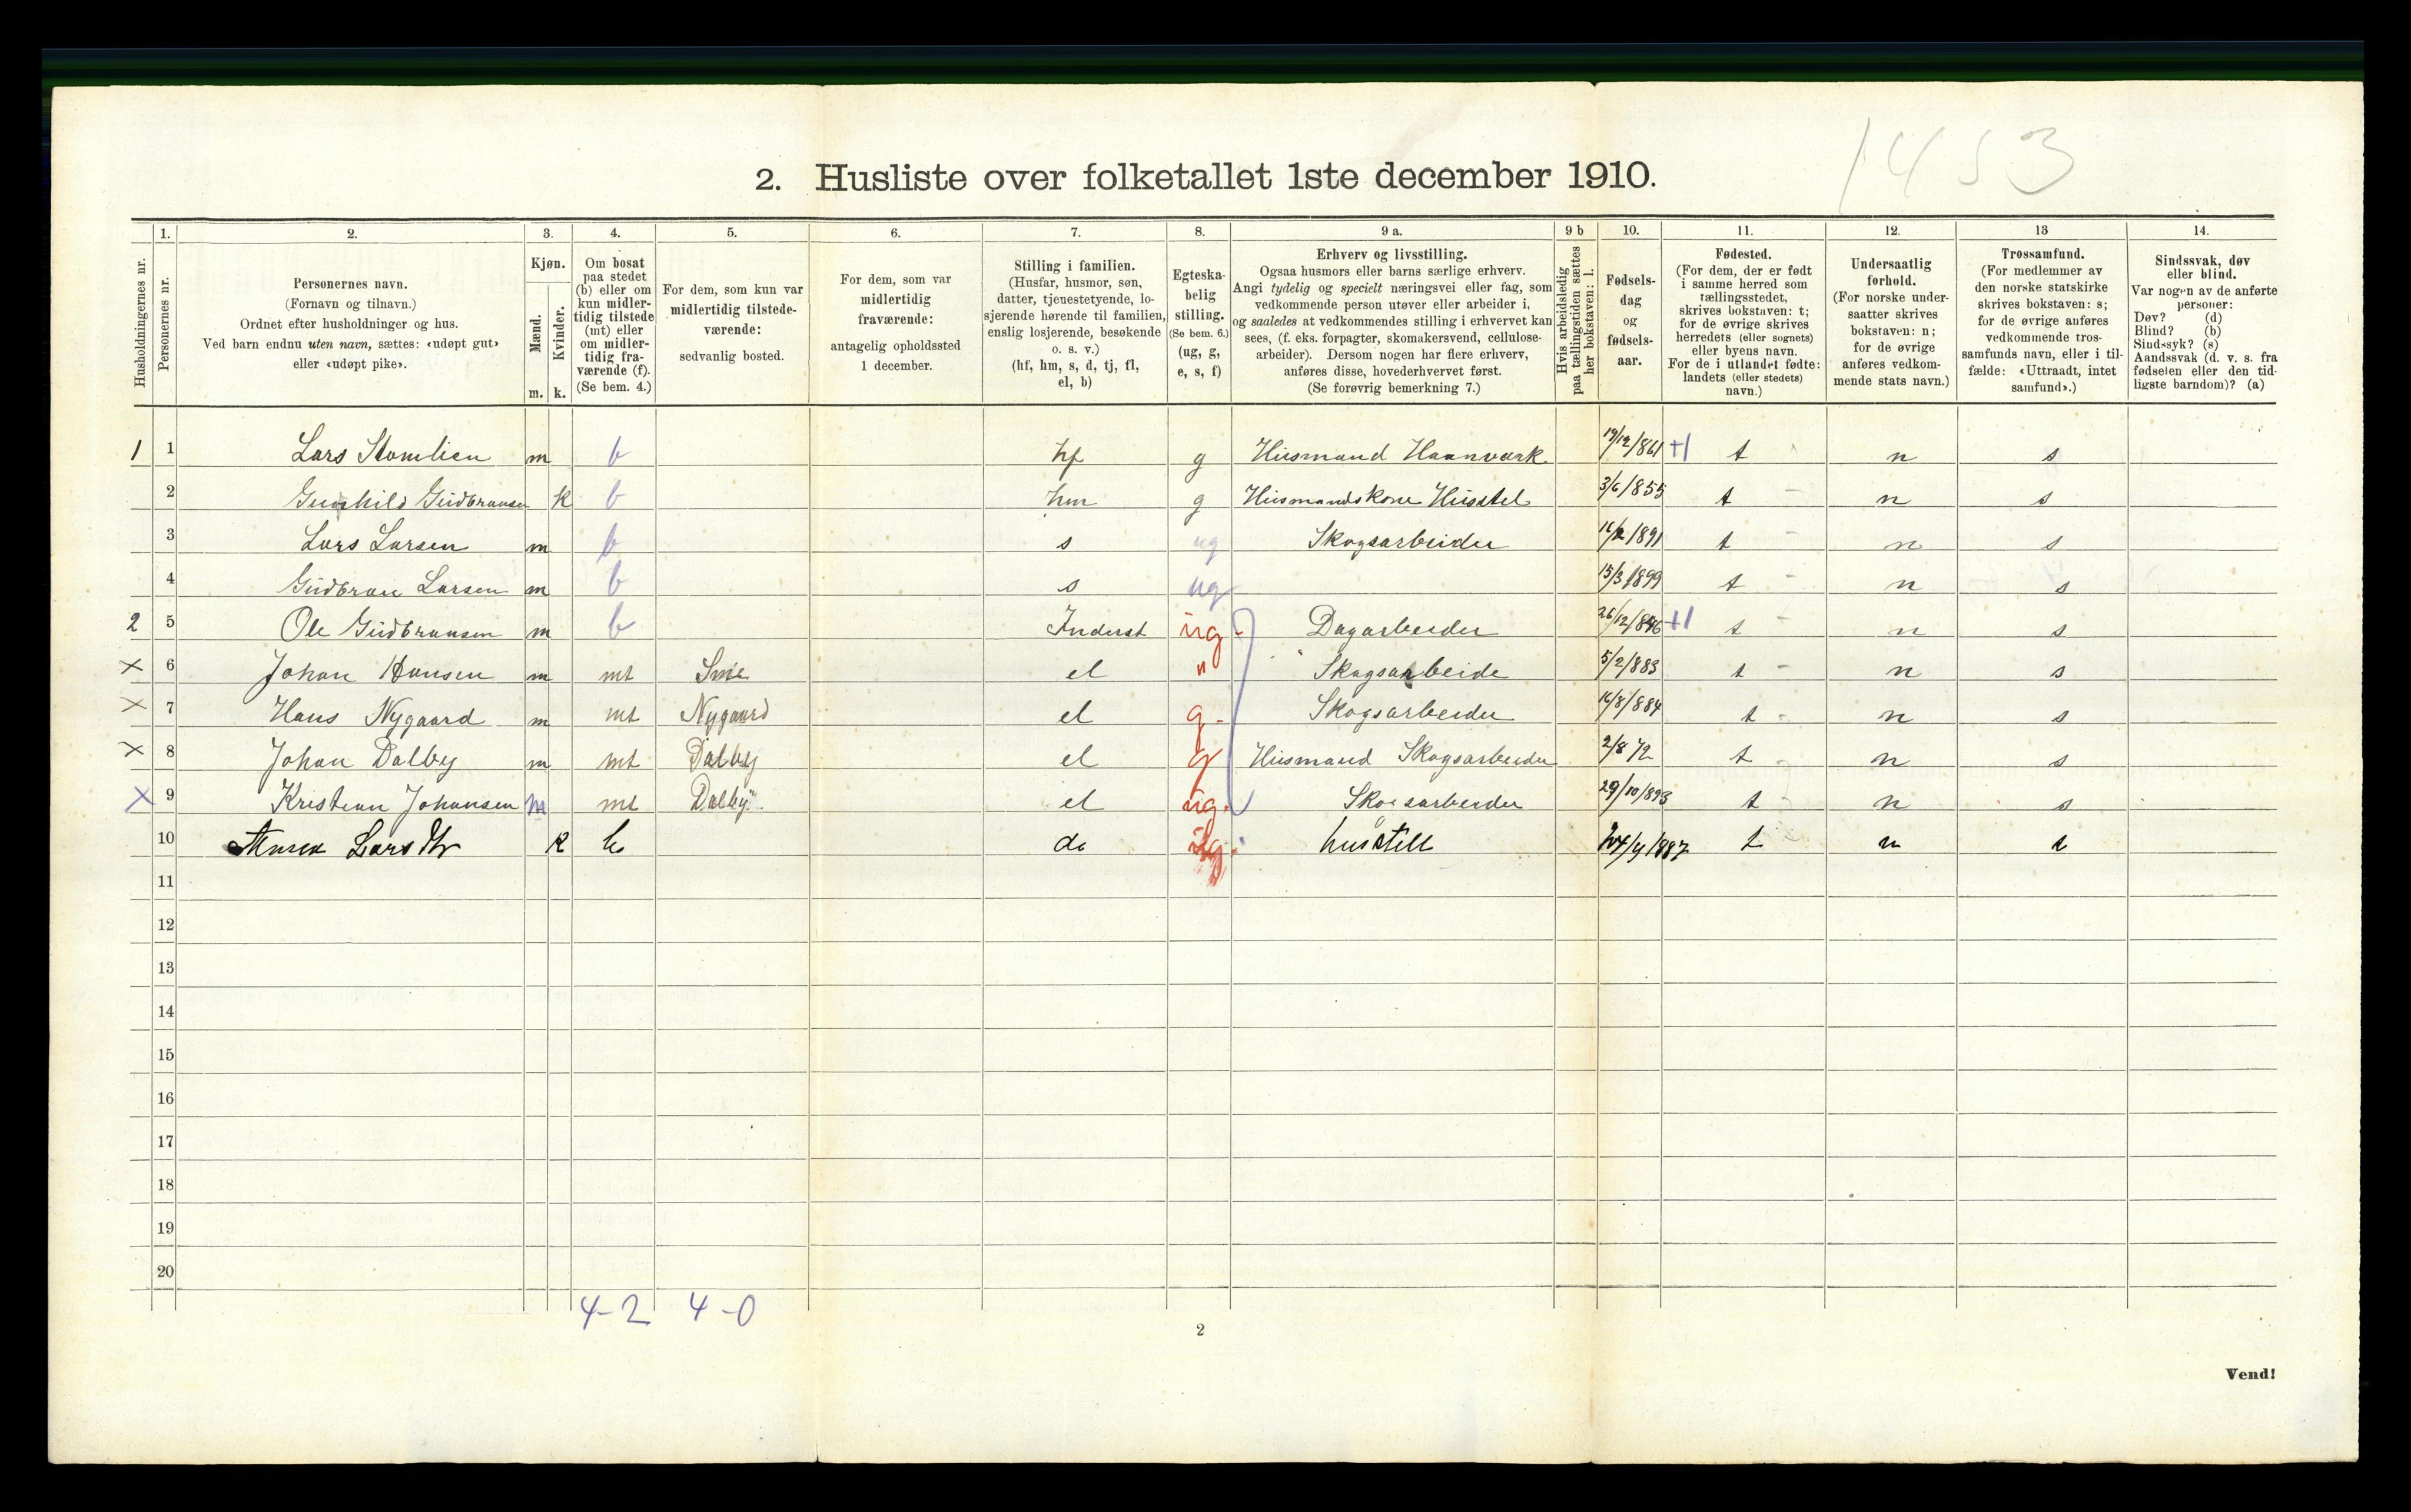 1453
2. Husliste over folketallet 1ste december 1910.
Husholdningernes nr.
1.
Personernes nr.
2.
Personernes navn.
(Fornavn og tilnavn.)
Ordnet efter husholdninger og hus.
Ved barn endnu uten navn, sættes: «udøpt gut»
eller «udøpt pike».
3.
Kjøn.
Mænd.
Kvinder.
m. k.
4.
Om bosat
paa stedet
(b) eller om
kun midler-
tidig tilstede
(mt) eller
om midler-
tidig fra-
værende (f).
(Se bem. 4.)
5.
For dem, som kun var
midlertidig tilstede-
værende:
sedvanlig bosted.
6.
For dem, som var
midlertidig
fraværende:
antagelig opholdssted
1 december.
7.
Stilling i familien.
(Husfar, husmor, søn,
datter, tjenestetyende, lo-
sjerende hørende til familien,
enslig losjerende, besøkende
o. s. v.)
(hf, hm, s, d, tj, fl,
el, b)
8.
Egteska-
belig
stilling.
(Se bem. 6.)
(ug, g,
e, s, f)
9 a.
Erhverv og livsstilling.
Ogsaa husmors eller barns særlige erhverv.
Angi tydelig og specielt næringsvei eller fag, som
vedkommende person utøver eller arbeider i,
og saaledes at vedkommendes stilling i erhvervet kan
sees, (f. eks. forpagter, skomakersvend, cellulose-
arbeider). Dersom nogen har flere erhverv,
anføres disse, hovederhvervet først.
(Se forøvrig bemerkning 7.)
9 b
Hvis arbeidsledig
paa tællingstiden sættes
her bokstaven: l.
10.
Fødsels-
dag
og
fødsels-
aar.
11.
Fødested.
(For dem, der er født
i samme herred som
tællingsstedet,
skrives bokstaven: t;
for de øvrige skrives
herredets (eller sognets)
eller byens navn.
For de i utlandet fødte:
landets (eller stedets)
navn.)
12.
Undersaatlig
forhold.
(For norske under-
saatter skrives
bokstaven: n;
for de øvrige
anføres vedkom-
mende stats navn.)
13
Trossamfund.
(For medlemmer av
den norske statskirke
skrives bokstaven: s;
for de øvrige anføres
vedkommende tros-
samfunds navn, eller i til-
fælde: «Uttraadt, intet
samfund».)
14.
Sindssvak, døv
eller blind.
Var nogen av de anførte
personer:
Døv? (d)
Blind? (b)
Sindssyk? (s)
Aandssvak (d. v. s. fra
fødselen eller den tid-
ligste barndom)? (a)
1 1 Lars Stomlien m b hf g Husmand Haanværk 19/12/861 +1 t n s
2 Gunhild Gudbransen k b hm g Husmandskone Husstel 3/6/855 t - n s
3 Lars Larsen m b s ug Skogsarbeider 1891 t - n s
4 Gudbran Larsen m b s ug 15/3/1899 t - n s
2 5 Ole Gudbransen m b Inderst ug - Dagarbeider 26/12/846 +1 t - n s
x 6 Johan Hansen m mt Smie el " Skogsarbeide 5/2/883 t - n s
x 7 Hans Nygaard m mt Nygaard el g - Skogsarbeider 16/8/884 t - n s
x 8 Johan Dalby m mt Dalby el g Husmand Skogsarbeider 2/8 72 t - n s
x 9 Kristian Johansen m mt Dalby el ug. Skogsarbeider 29/10/893 t - n s
10 Lars Dtr k b d ug. husstell 1887 t n s
11
12
13
14
15
16
17
18
19
20
4-2 4-0
2
Vend!